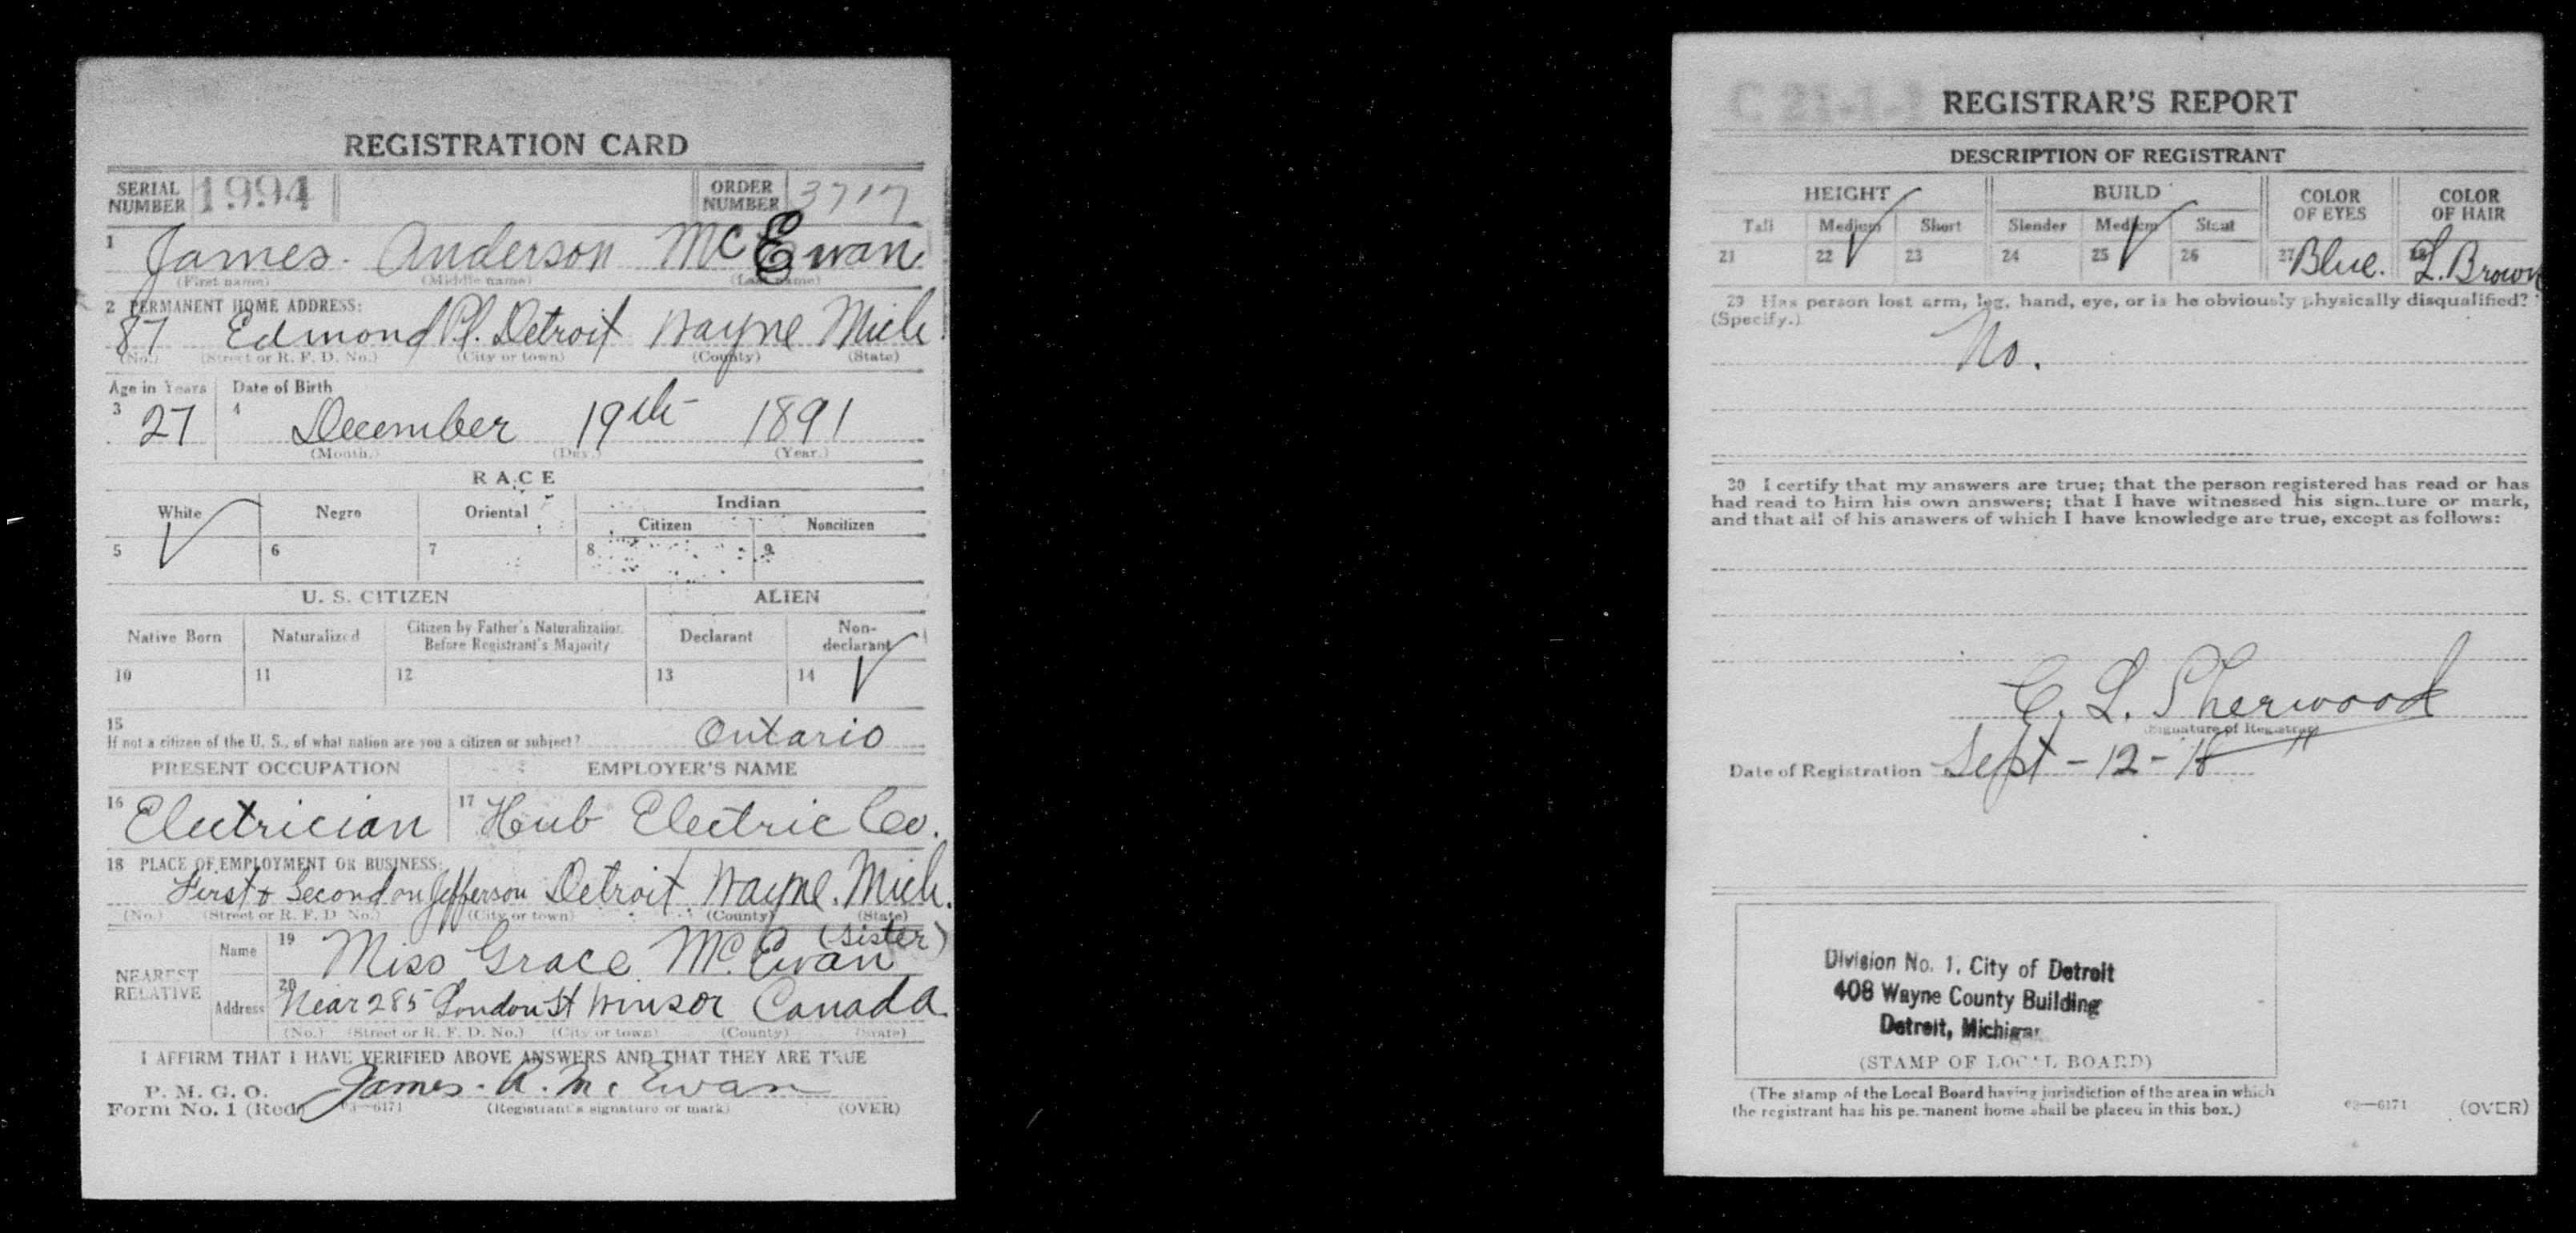 REGISTRATION CARD
SERIAL NUMBER 1994 ORDER NUMBER 3717
1 James. Anderson McEwan
(First name) (Middle name) (Last name)
2 PERMANENT HOME ADDRESS:
87 Edmond Pl. Detroit Wayne Mich.
(No.) (Street or R. F. D. No.) (City or town) (County) (State)
Age in Years Date of Birth
3 27 4 December 19th 1891
(Month.) (Day.) (Year.)
RACE
White Negro Oriental Indian
Citizen Noncitizen
5 6 7 8 9
U. S. CITIZEN ALIEN
Native Born Naturalized Citizen by Father's Naturalization Before Registrant's Majority Declarant Non-declarant
10 11 12 13 14
15 If not a citizen of the U. S., of what nation are you a citizen or subject? Ontario
PRESENT OCCUPATION EMPLOYER'S NAME
16 Electrician 17 Hub Electric Co.
18 PLACE OF EMPLOYMENT OR BUSINESS:
First & Second on Jefferson Detroit. Wayne. Mich.
(No.) (Street or R. F. D. No.) (City or town) (County) (State)
NEAREST RELATIVE
Name 19 Miss Grace Mc. Ewan (sister)
Address 20 Near 285 London St Winsor Canada.
(No.) (Street or R. F. D. No.) (City or town) (County) (State)
I AFFIRM THAT I HAVE VERIFIED ABOVE ANSWERS AND THAT THEY ARE TRUE
P. M. G. O.
Form No. 1 (Red) 03—6171 James. A. Mc Ewan
(Registrant's signature or mark) (OVER)
C 21-1-1 REGISTRAR'S REPORT
DESCRIPTION OF REGISTRANT
HEIGHT BUILD COLOR OF EYES COLOR OF HAIR
Tall Medium Short Slender Medium Stout
21 22 23 24 25 26 27 Blue. 28 L. Brown
29 Has person lost arm, leg, hand, eye, or is he obviously physically disqualified?
(Specify.)
No.
30 I certify that my answers are true; that the person registered has read or has
had read to him his own answers; that I have witnessed his signature or mark,
and that all of his answers of which I have knowledge are true, except as follows:
C. L. Sherwood
(Signature of Registrar)
Date of Registration Sept - 12 - 18
Division No. 1, City of Detroit
408 Wayne County Building
Detroit, Michigan
(STAMP OF LOCAL BOARD)
(The stamp of the Local Board having jurisdiction of the area in which
the registrant has his permanent home shall be placed in this box.)
03—6171 (OVER)